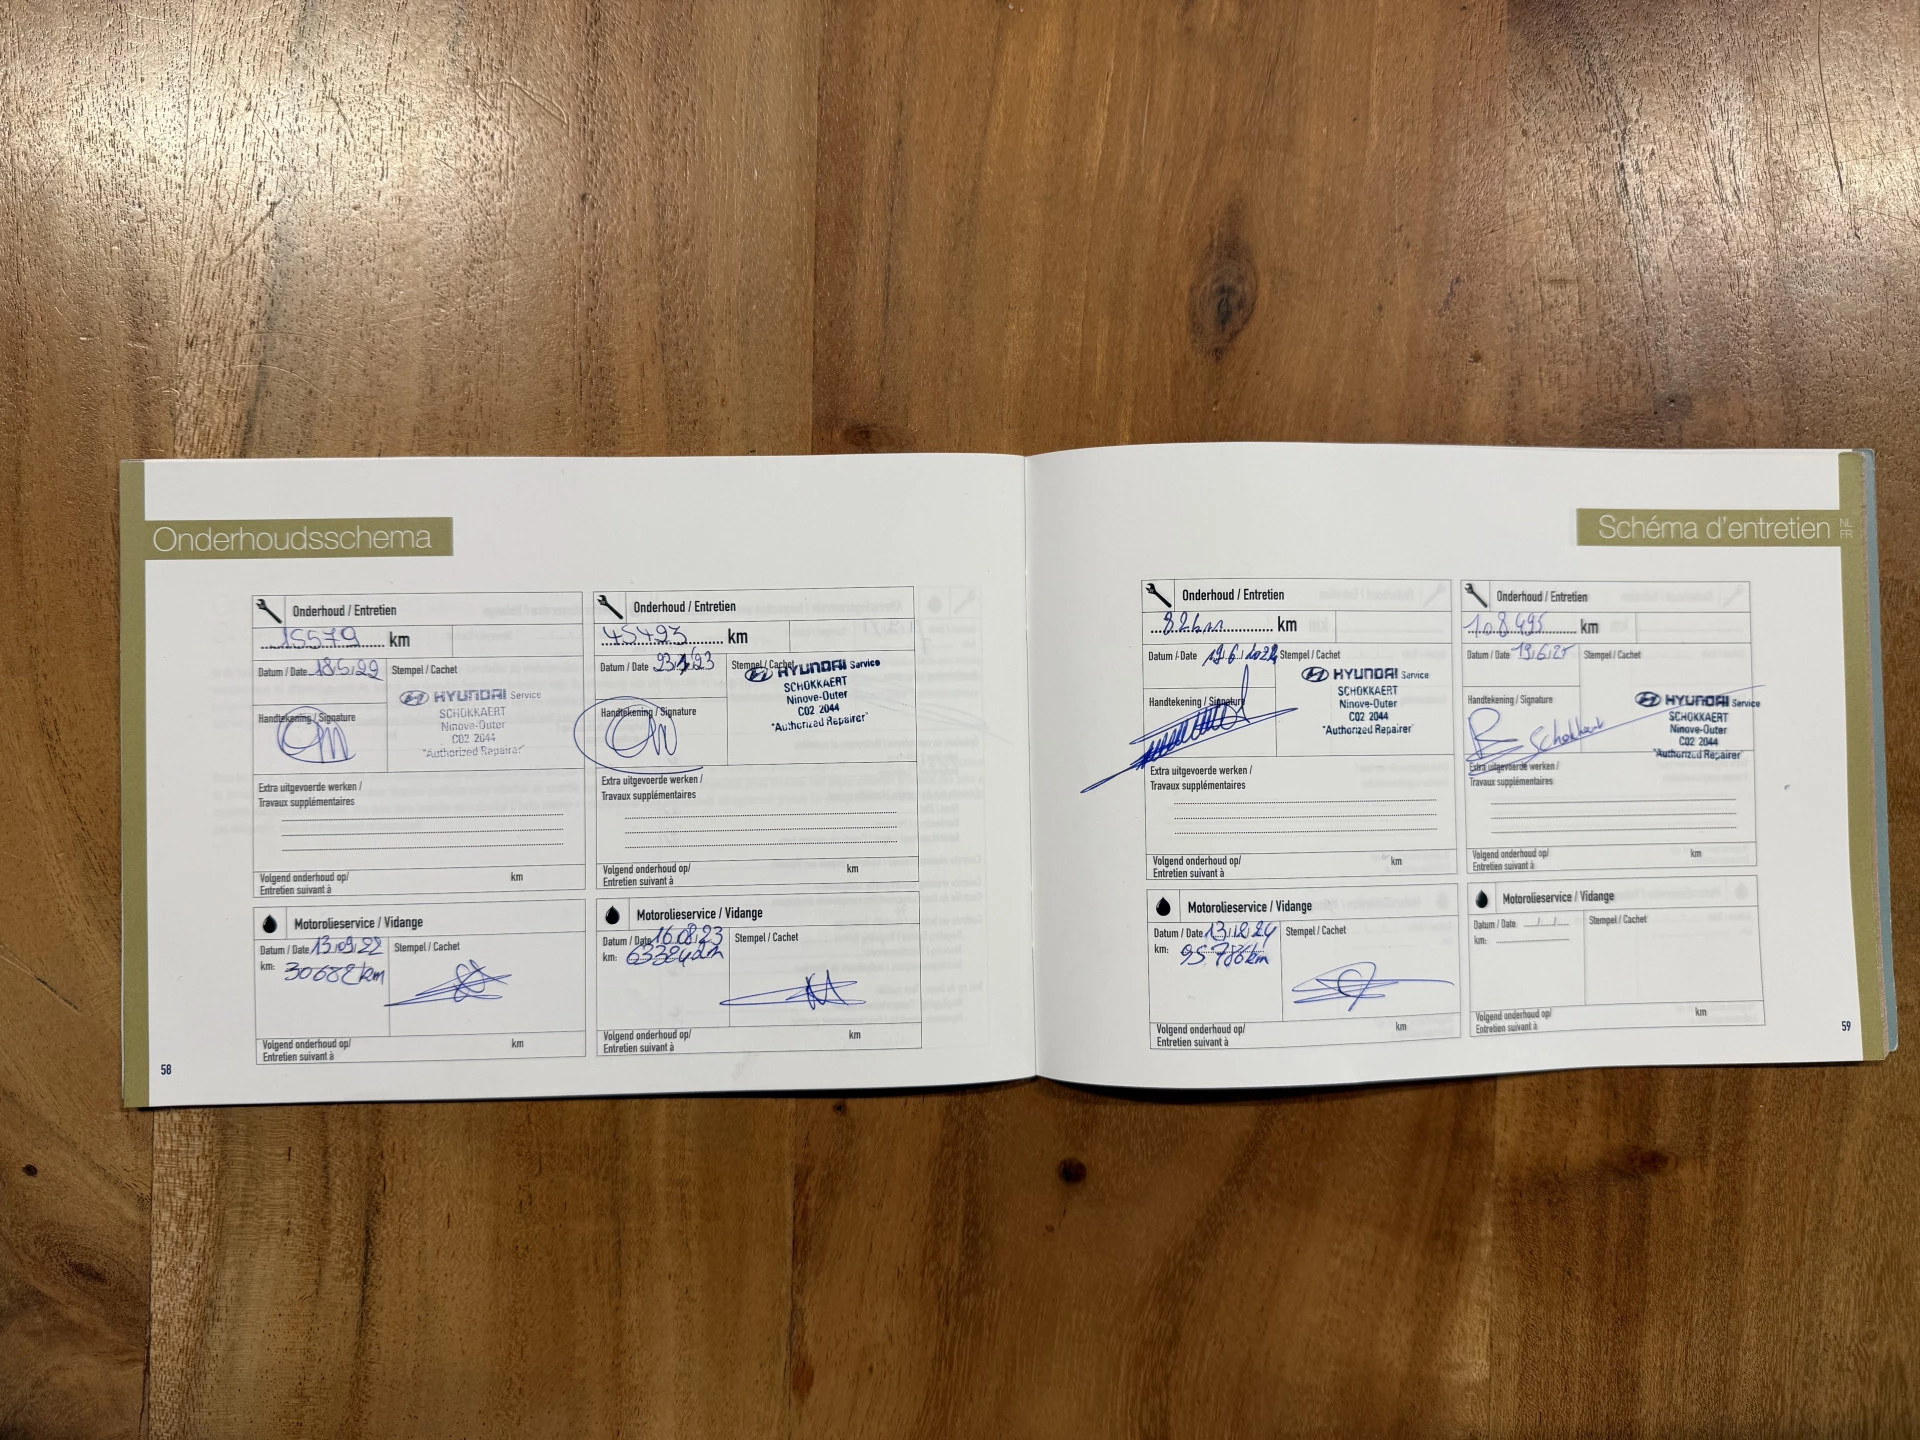 Onderhoudsschema
Onderhoud / Entretien
15579 km
Datum / Date 18.5.22 Stempel / Cachet
HYUNDAI Service
SCHOKKAERT
Ninove-Outer
C02 2044
"Authorized Repairer"
Handtekening / Signature
Extra uitgevoerde werken /
Travaux supplémentaires
Volgend onderhoud op/ km
Entretien suivant à
Motorolieservice / Vidange
Datum / Date 13.09.22 Stempel / Cachet
km: 30682 km
Volgend onderhoud op/ km
Entretien suivant à
58
Onderhoud / Entretien
45493 km
Datum / Date 23.1.23 Stempel / Cachet
HYUNDAI Service
SCHOKKAERT
Ninove-Outer
C02 2044
"Authorized Repairer"
Handtekening / Signature
Extra uitgevoerde werken /
Travaux supplémentaires
Volgend onderhoud op/ km
Entretien suivant à
Motorolieservice / Vidange
Datum / Date 16.08.23 Stempel / Cachet
km:
Volgend onderhoud op/ km
Entretien suivant à
Schéma d'entretien
NL
FR
Onderhoud / Entretien
km
Datum / Date 19.6.2024 Stempel / Cachet
HYUNDAI Service
SCHOKKAERT
Ninove-Outer
C02 2044
"Authorized Repairer"
Handtekening / Signature
Extra uitgevoerde werken /
Travaux supplémentaires
Volgend onderhoud op/ km
Entretien suivant à
Motorolieservice / Vidange
Datum / Date 13.12.24 Stempel / Cachet
km: 95786 km
Volgend onderhoud op/ km
Entretien suivant à
Onderhoud / Entretien
108495 km
Datum / Date 19.6.25 Stempel / Cachet
HYUNDAI Service
SCHOKKAERT
Ninove-Outer
C02 2044
"Authorized Repairer"
Handtekening / Signature
Schokkaert
Extra uitgevoerde werken /
Travaux supplémentaires
Volgend onderhoud op/ km
Entretien suivant à
Motorolieservice / Vidange
Datum / Date / / Stempel / Cachet
km:
Volgend onderhoud op/ km
Entretien suivant à
59